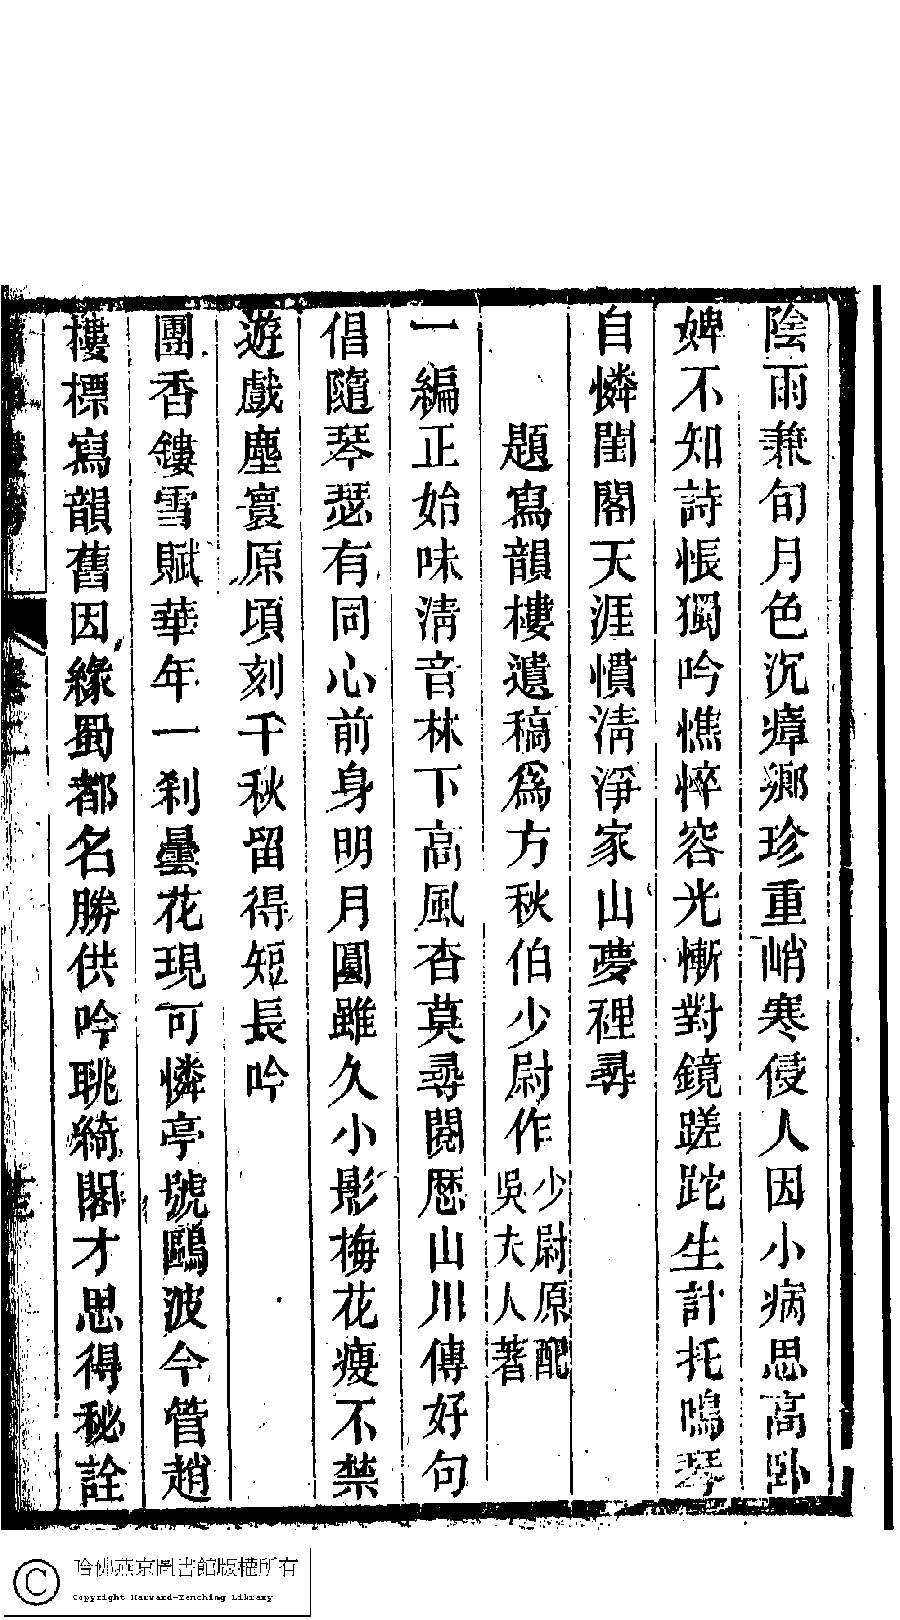 陰雨兼旬月色沉瘴鄉珍重峭寒侵人因小病思高臥
婢不知詩悵獨吟憔悴容光慚對鏡蹉跎生計托鳴琴
自憐閨閣天涯慣清淨家山夢裡尋
題寫韻樓遺稿爲方秋伯少尉作少尉原配吳夫人著
一編正始味淸音林下高風杳莫尋閱歷山川傳好句
倡隨琴瑟有同心前身明月圓雖久小影梅花瘦不禁
遊戲塵寰原頃刻千秋留得短長吟
團香鏤雪賦華年一刹曇花現可憐亭號鷗波今管趙
樓標寫韻舊因緣蜀都名勝供吟眺綺閣才思得秘詮
卷二
哈佛燕京圖書館版權所有
Copyright Harvard-Yenching Library